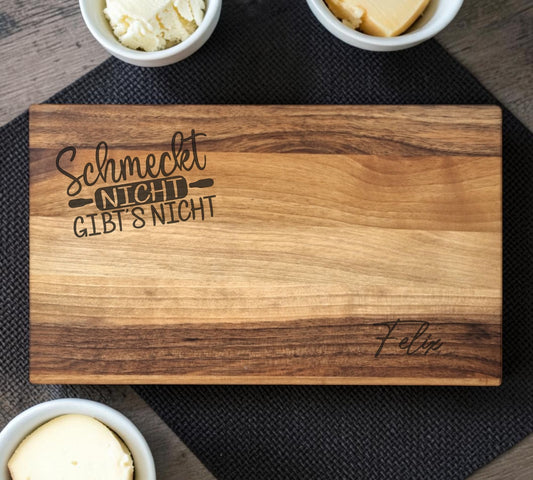 Schmeckt
NICHT
GIBT'S NICHT
Felix